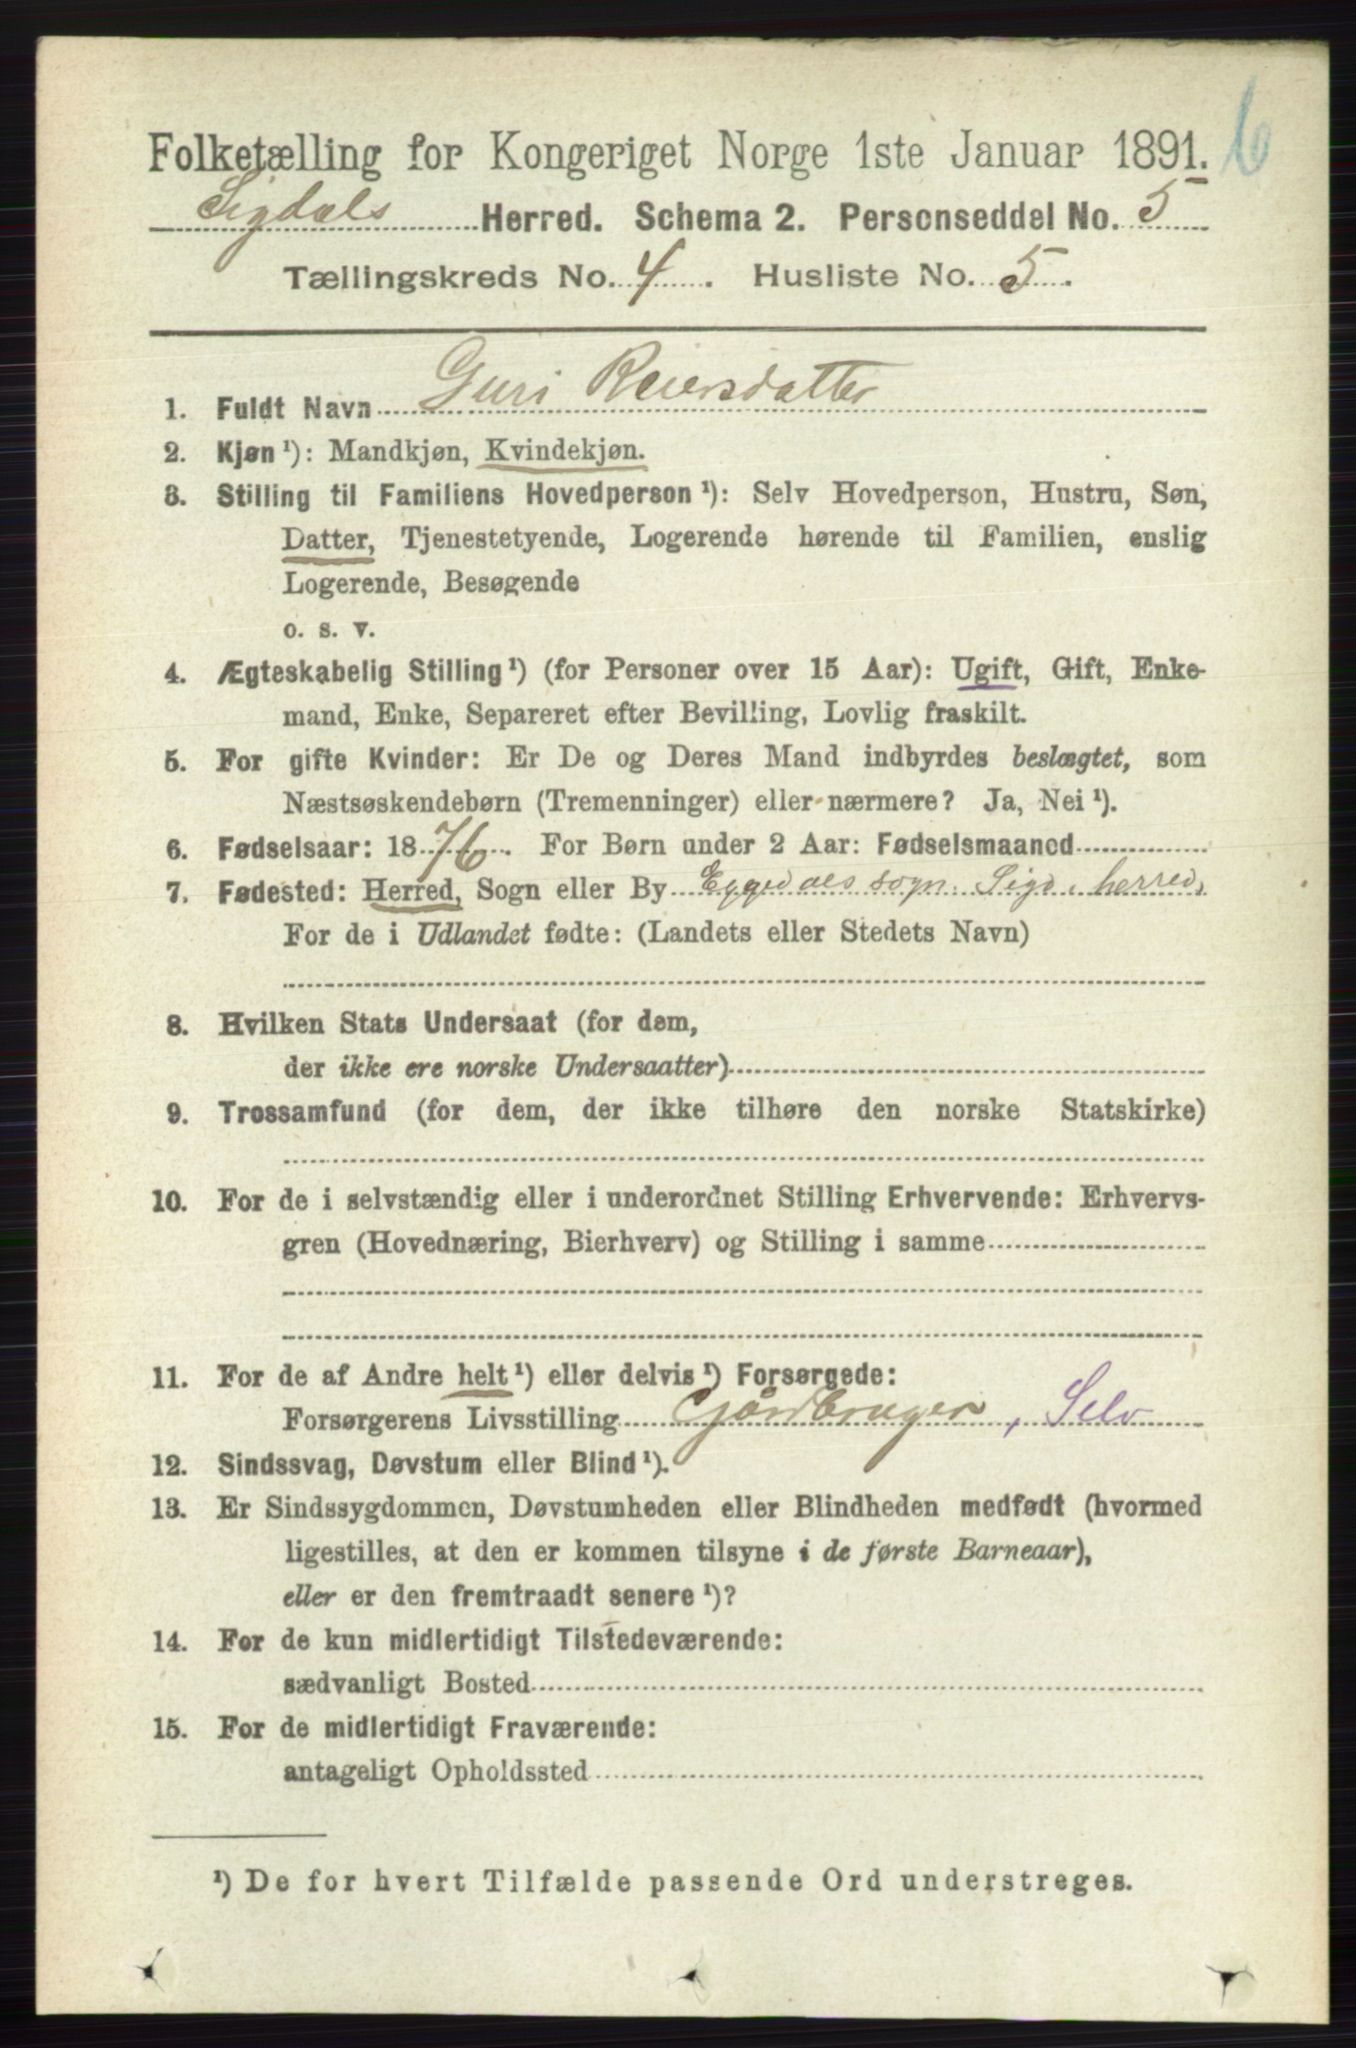 6
Folketælling for Kongeriget Norge 1ste Januar 1891.
Sigdals Herred. Schema 2. Personseddel No. 5
Tællingskreds No. 4. Husliste No. 5.
1. Fuldt Navn Guri Reiersdatter
2. Kjøn ¹): Mandkjøn, Kvindekjøn.
3. Stilling til Familiens Hovedperson ¹): Selv Hovedperson, Hustru, Søn,
Datter, Tjenestetyende, Logerende hørende til Familien, enslig
Logerende, Besøgende
o. s. v.
4. Ægteskabelig Stilling ¹) (for Personer over 15 Aar): Ugift, Gift, Enke-
mand, Enke, Separeret efter Bevilling, Lovlig fraskilt.
5. For gifte Kvinder: Er De og Deres Mand indbyrdes beslægtet, som
Næstsøskendebørn (Tremenninger) eller nærmere? Ja, Nei ¹).
6. Fødselsaar: 1876. For Børn under 2 Aar: Fødselsmaaned
7. Fødested: Herred, Sogn eller By Eggedals sogn. Sigd. herred,
For de i Udlandet fødte: (Landets eller Stedets Navn)
8. Hvilken Stats Undersaat (for dem,
der ikke ere norske Undersaatter)
9. Trossamfund (for dem, der ikke tilhøre den norske Statskirke)
10. For de i selvstændig eller i underordnet Stilling Erhvervende: Erhvervs-
gren (Hovednæring, Bierhverv) og Stilling i samme
11. For de af Andre helt ¹) eller delvis ¹) Forsørgede:
Forsørgerens Livsstilling Gårdbruger, Selv
12. Sindssvag, Døvstum eller Blind ¹).
13. Er Sindssygdommen, Døvstumheden eller Blindheden medfødt (hvormed
ligestilles, at den er kommen tilsyne i de første Barneaar),
eller er den fremtraadt senere ¹)?
14. For de kun midlertidigt Tilstedeværende:
sædvanligt Bosted
15. For de midlertidigt Fraværende:
antageligt Opholdssted
¹) De for hvert Tilfælde passende Ord understreges.